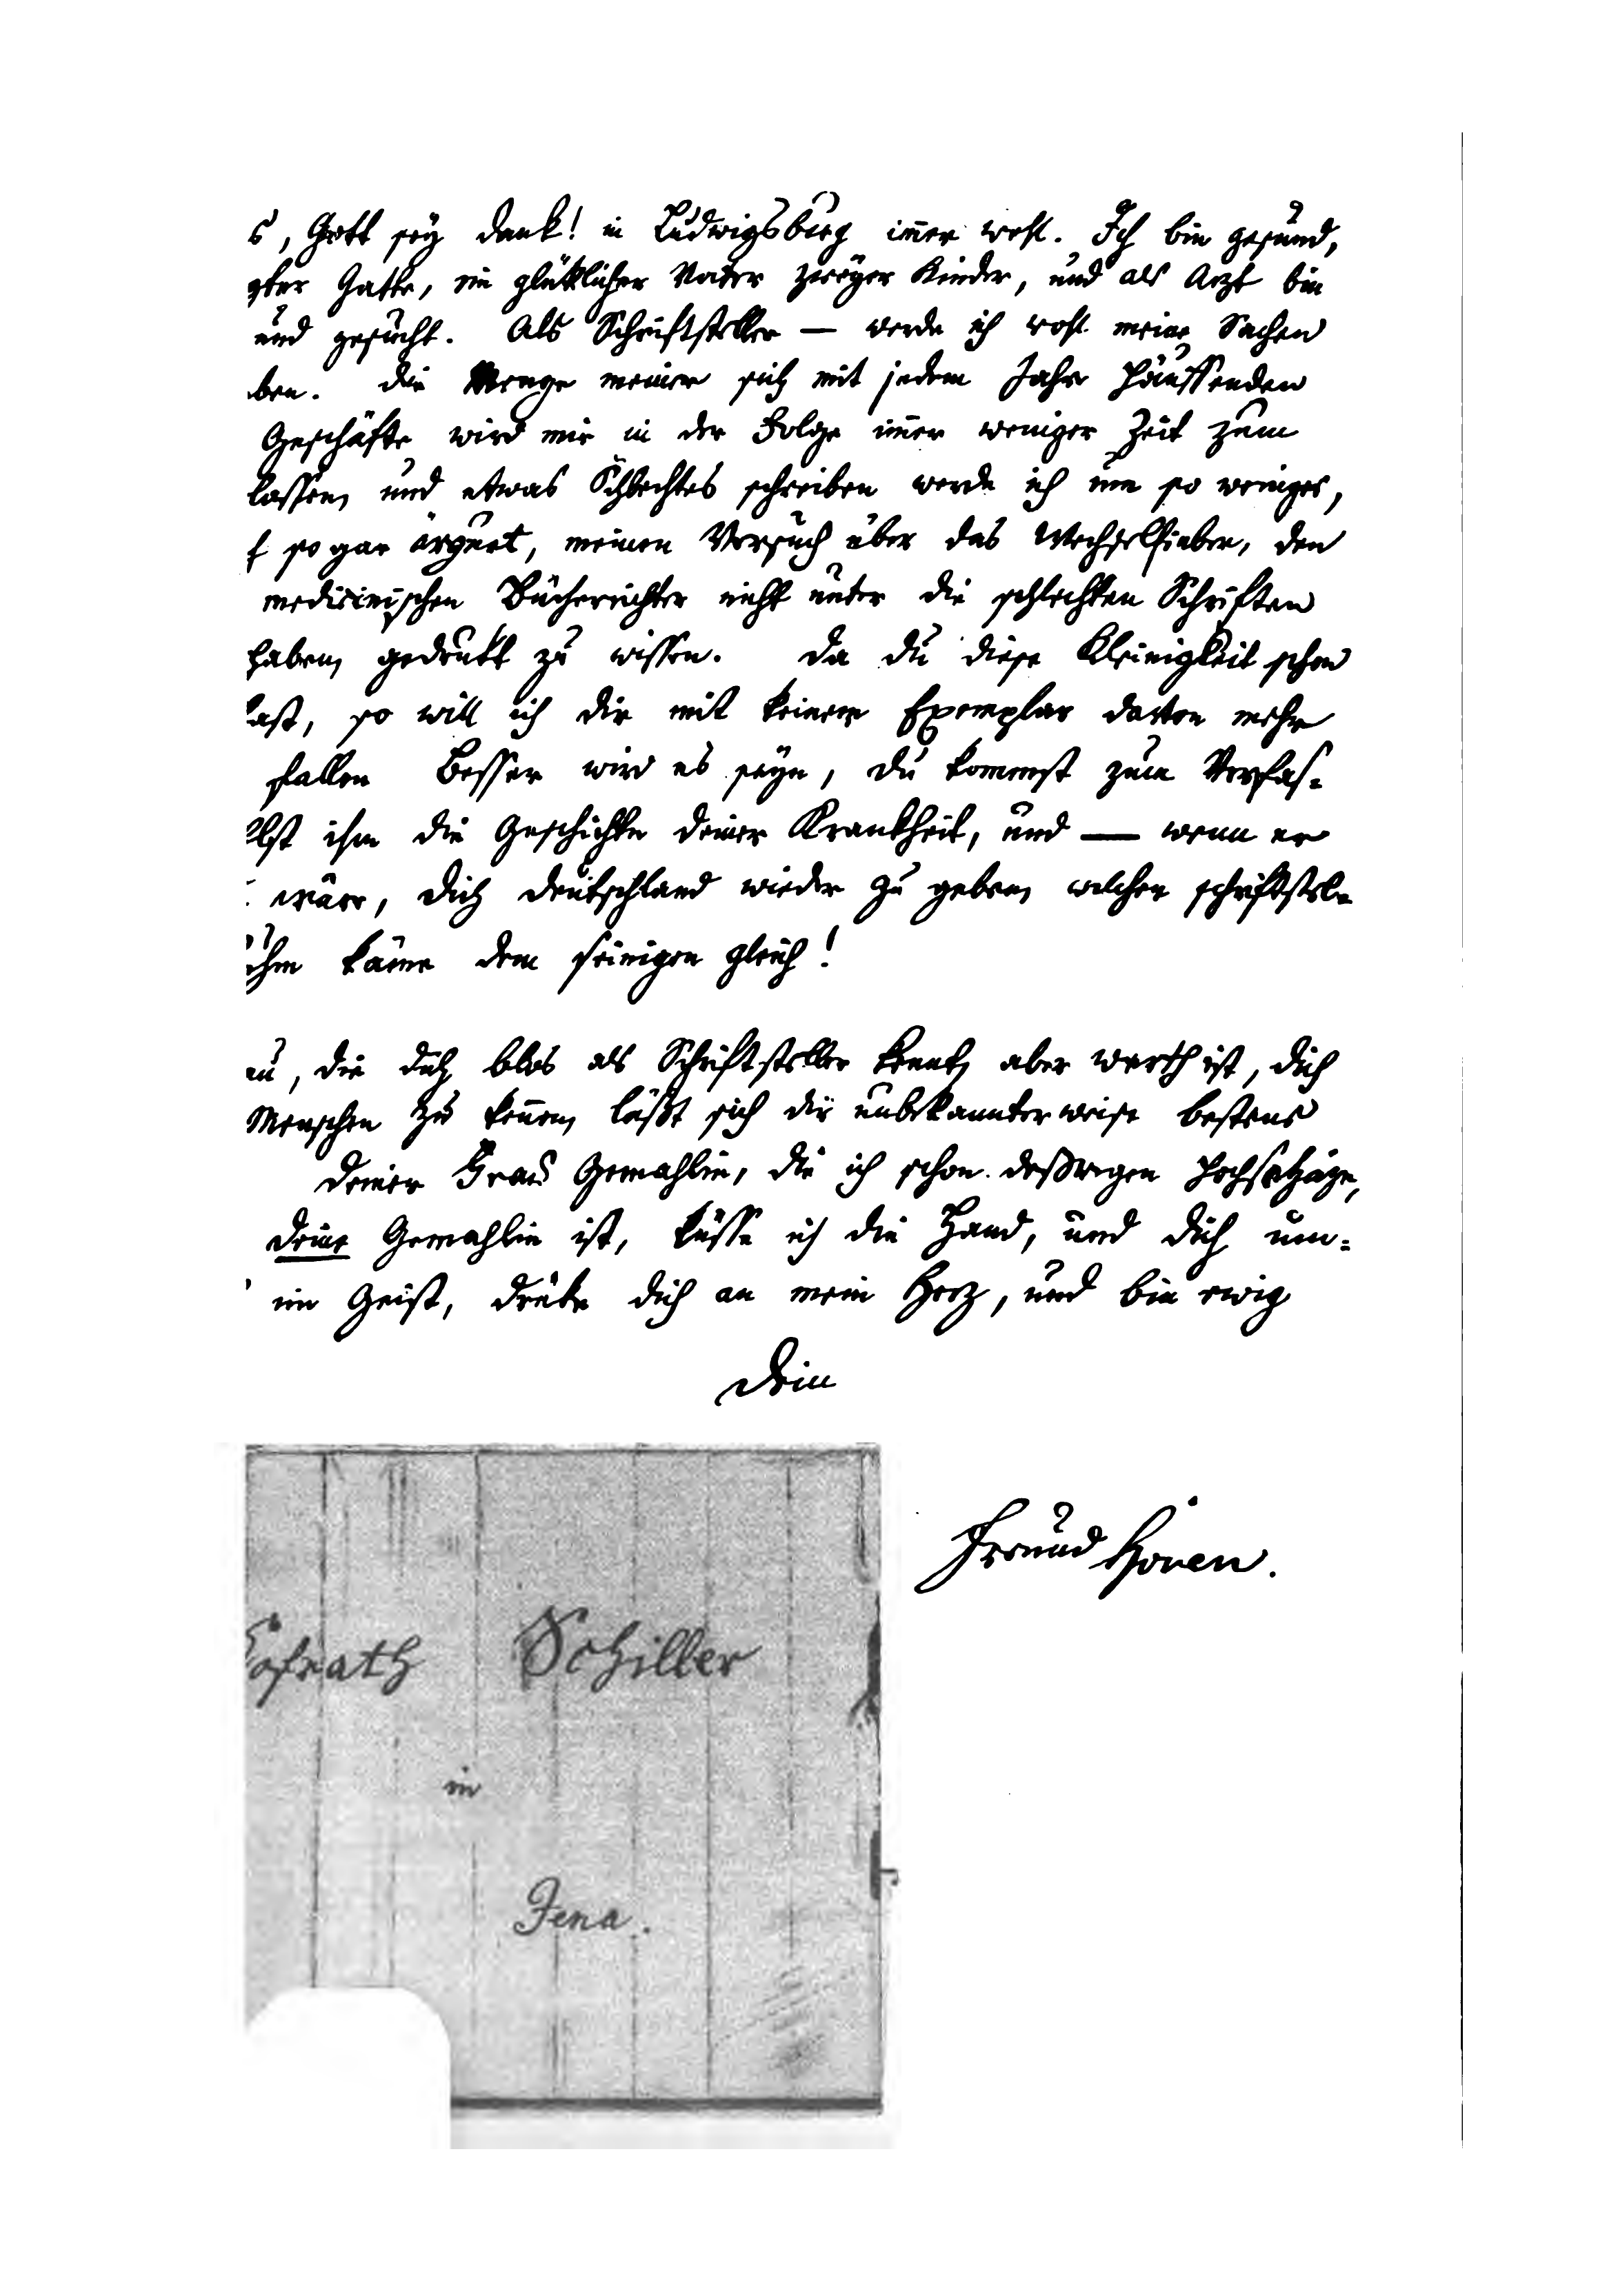 s, Gott sey Dank! in Ludwigsburg im̄er wohl. Ich bin gesund,
gter Gatte, ein glüklicher Vater zweyer Kinder, und als Arzt bin
und gesucht. Als Schriftsteller — werde ich wohl meine Sachen
ben. Die Menge meiner sich mit jedem Jahr häuffenden
Geschäfte wird mir in der Folge im̄er weniger Zeit zum
lassen, und etwas Schlechtes schreiben werde ich um so weniger,
sogar ärgert, meinen Versuch über das Wechselfieber, den
medicinischen Bücherrichter nicht unter die schlechten Schriften
haben, gedrukt zu wissen. Da du diese Kleinigkeit schon
ast, so will ich dir mit keinem Exemplar davon mehr
fallen Besser wird es seyn, du kommst zum Verfas-
lst ihm die Geschichte deiner Krankheit, und — wenn er
wäre, dich Deutschland wieder zu geben, welcher schriftstel-
uhm käme dem seinigen gleich!
au, die dich blos als Schriftsteller kennt, aber werth ist, dich
Menschen zu ken̄en, läßt sich dir unbekannterweise bestens
Deiner Frau Gemahlin, die ich schon deßwegen hochschäze,
deine Gemahlin ist, küsse ich die Hand, und dich um-
im Geist, drüke dich an mein Herz, und bin ewig
Dein
Freund Hoven.
Hofrath Schiller
in
Jena.